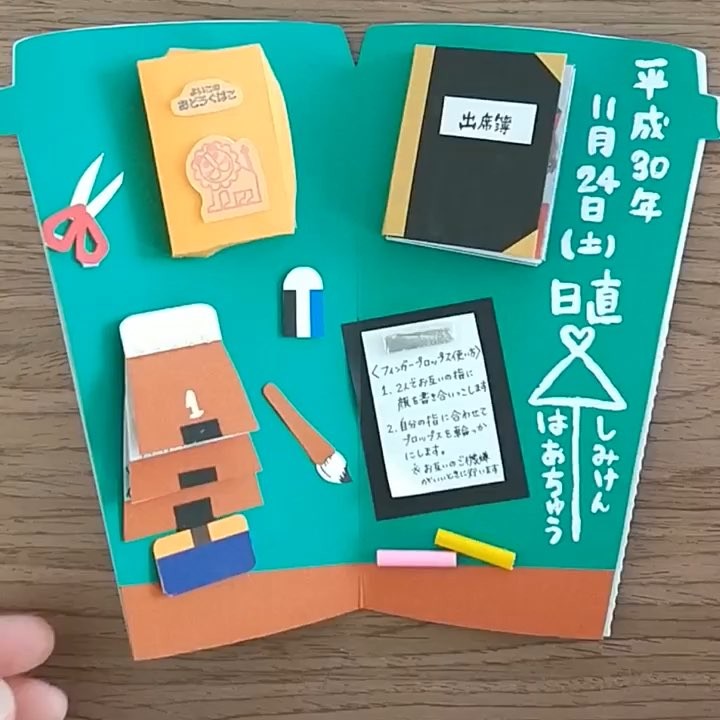 よいこの
おどうぐばこ
出席簿
平成30年
11月24日(土)
日直
しみけん
はあちゅう
1
〈フィンガープロップス使い方〉
1. 2人でお互いの指に
顔を書き合いっこします
2. 自分の指に合わせて
プロップスを輪っか
にします。
※お互いのご機嫌
のがいいときに行います